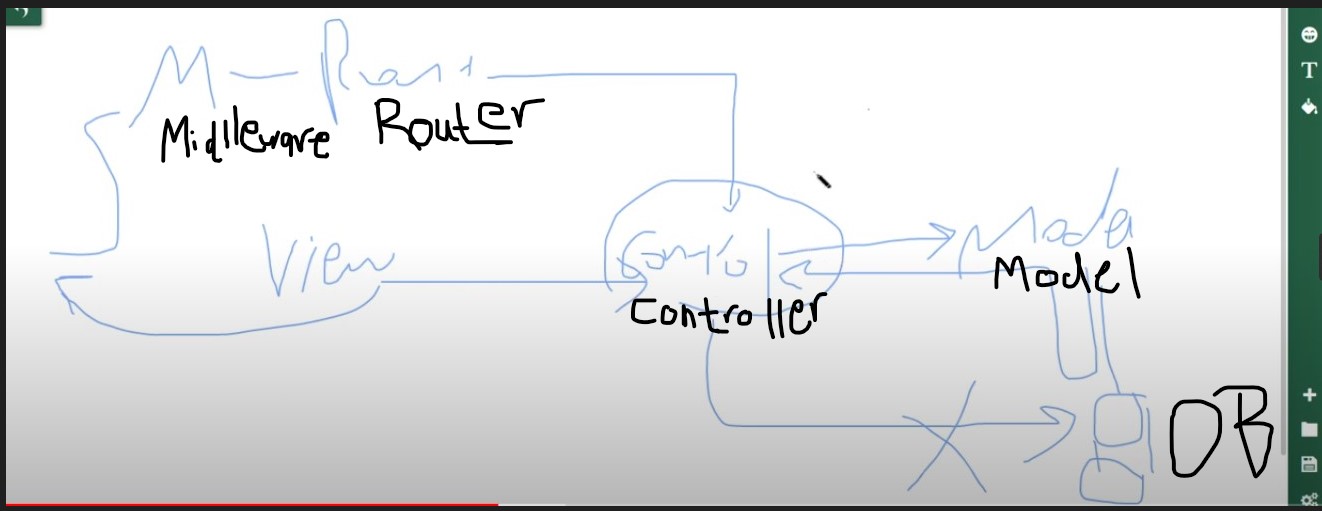 M — Rout
Midlleware Router
View Contro Model
Controller Model
DB
T